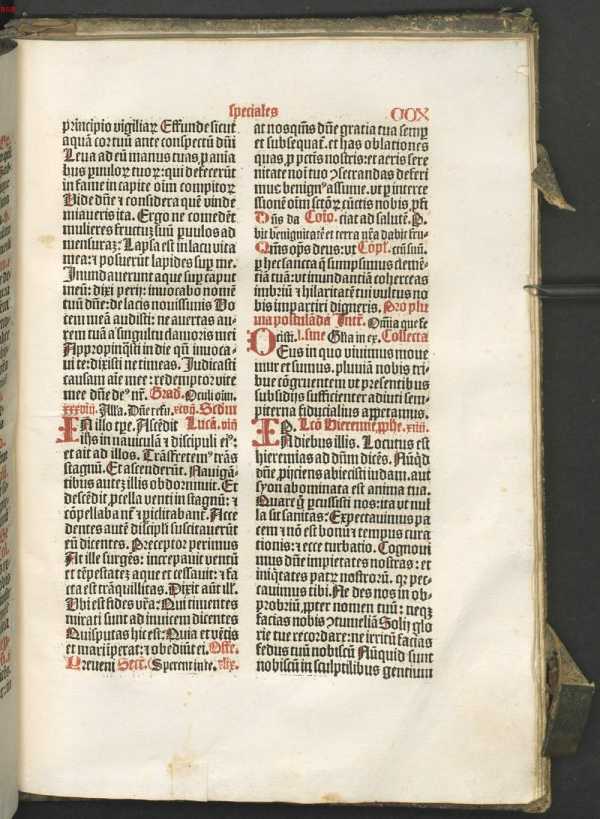 speciales CCX
principio vigiliaꝝ Effunde sicut
aquā cor tuū ante conspectū dn̄i
Leua ad eū manus tuas ꝓ ania
bus ꝑuuloꝝ tuoꝝ: qui defecerūt
in fame in capite oīm compitoꝝ
Vide dn̄e ⁊ considera quē vinde
miaueris ita. Ergo ne comedēt
mulieres fructuʒ suū ꝑuulos ad
mensuraʒ: Lapsa est in lacū vita
mea: ⁊ posuerūt lapides suꝑ me.
Inundauerunt aque suꝑ caput
meū: dixi perij: inuocabo nomē
tuū dn̄e: de lacis nouissimis Vo
cem meā audisti: ne auertas au
rem tuā a singultu ⁊ clamoris mei
Appropinq̄sti in die qn̄ inuoca
ui te: dixisti ne timeas. Iudicasti
causam aīe mee: redemptor vite
mee dn̄e de⁹ nr̄. Grad. Oculi oīm.
xxxviij. Alla. Dn̄e refu. xcvij. Scdm
IN illo tꝑe. Ascēdit Lucā. viij
ihs in nauiculā ⁊ discipuli ei⁹:
et ait ad illos. Trāsfretem⁹ trās
stagnū. Et ascenderūt. Nauigā
tibus autez illis obdormiuit. Et
descēdit ꝓcella venti in stagnū: ⁊
cōpellabāt̄ ⁊ ꝑiclitabant̄. Acce
dentes autē discipli suscitauerūt
eū dicentes. Preceptor perimus
At ille surgēs: increpauit ventū
et tēpestatez aque et cessauit: ⁊ fa
cta est trāquillitas. Dixit aūt ill'.
Vbi est fides vr̄a: Qui timentes
mirati sunt ad inuicem dicentes
Quis putas hic est: Quia et vētis
et mari imꝑat: ⁊ obediūt ei. Offe.
Preueni Secr̄. Sperent in te. xlix.
at nos q̄ms dn̄e gratia tua semꝑ
et subsequat̄. et has oblationes
quas ꝓ pctīs nostris: et aeris sere
nitate noī tuo ꝯsecrandas deferi
mus: benign⁹ assume. vt ꝑ interce
ssionē oīm sctōꝝ ⁊ cūctis nobis ꝓfi
Dn̄s da Cōio. ciat ad salutē. P.
bit benignitatē et terra nr̄a dabit fru-
Q̄ms ops̄ deus: vt Cōpl'. ctū suū.
ꝑ hec sancta q̄ sumpsimus cleme-
tiā tuā: vt inundantiā coherceas
imbriū ⁊ hilaritatē tui vultus no
bis impartiri digneris. Pro plu
uia postulāda Intr̄. Omīa que fe
cisti. l. sine Gl'ia in ex. Collecta
DEus in quo viuimus moue
mur et sumus. pluuiā nobis tri-
bue cōgruentem vt presentibus
subsidijs sufficienter adiuti sem-
piterna fiducialius appetamus.
P. Lcō Hieremie ꝓphe. xiiij.
IN diebus illis. Locutus est
hieremias ad dn̄m dicēs. Nūq̄d
dn̄e ꝓijciens abiecisti iudam. aut
syon abominata est anima tua.
Quare q̄ ꝑcussisti nos: ita vt nul
la sit sanitas: Expectauimus pa
cem ⁊ nō est bonū: ⁊ tempus cura
tionis: ⁊ ecce turbatio. Cognoui
mus dn̄e impietates nostras: et
iniq̄tates patꝝ nostroꝝ. qꝛ pec-
cauimus tibi. Ne des nos in ob-
probriū ꝓpter nomen tuū: neqʒ
facias nobis ꝯtumeliā Solij glo
rie tue recordare: ne irritū facias
fedus tuū nobiscū Nūquid sunt
nobiscū in sculptilibus gentium